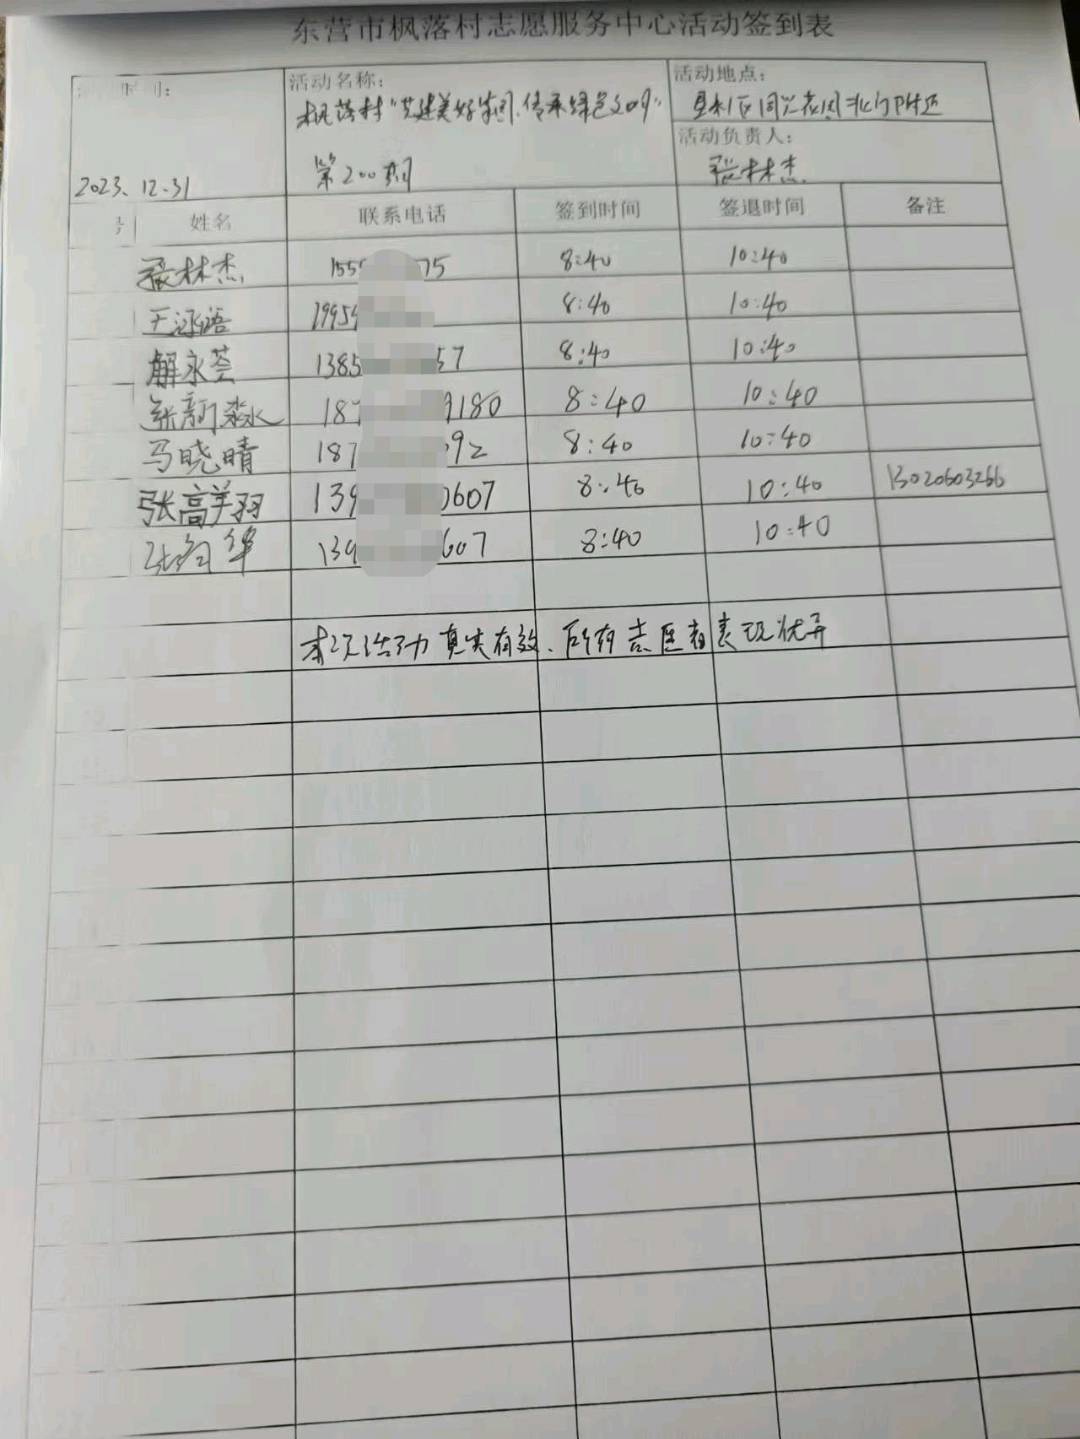 东营市枫落村志愿服务中心活动签到表
时间：
活动名称：
活动地点：
枫落村“共建美好家园，传承绿色文明”
垦利区同兴花园北门附近
活动负责人：
张林杰
第200期
2023.12.31
号 姓名 联系电话 签到时间 签退时间 备注
张林杰 155 75 8:40 10:40
王泳语 19959 8:40 10:40
解永荟 1385 57 8:40 10:40
张新淼 187 9180 8:40 10:40
马晓晴 187 92 8:40 10:40
张高美羽 139 0607 8:40 10:40 13020603266
华 139 607 8:40 10:40
本次活动真实有效、所有志愿者表现优异